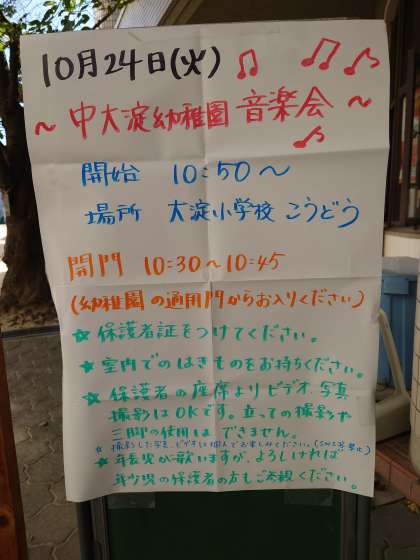 10月24日(火)
～ 中大淀幼稚園 音楽会 ～
開始 10:50～
場所 大淀小学校 こうどう
開門 10:30～10:45
(幼稚園の通用門からお入りください)
☆ 保護者証をつけてください。
☆ 室内でのはきものをお持ちください。
☆ 保護者の座席よりビデオ、写真
撮影はOKです。立っての撮影や
三脚の使用は、できません。
☆ 撮影した写真、ビデオは個人でお楽しみください。(SNS等禁止)
☆ 年長児が歌いますが、よろしければ
年少児の保護者の方もご参観ください。